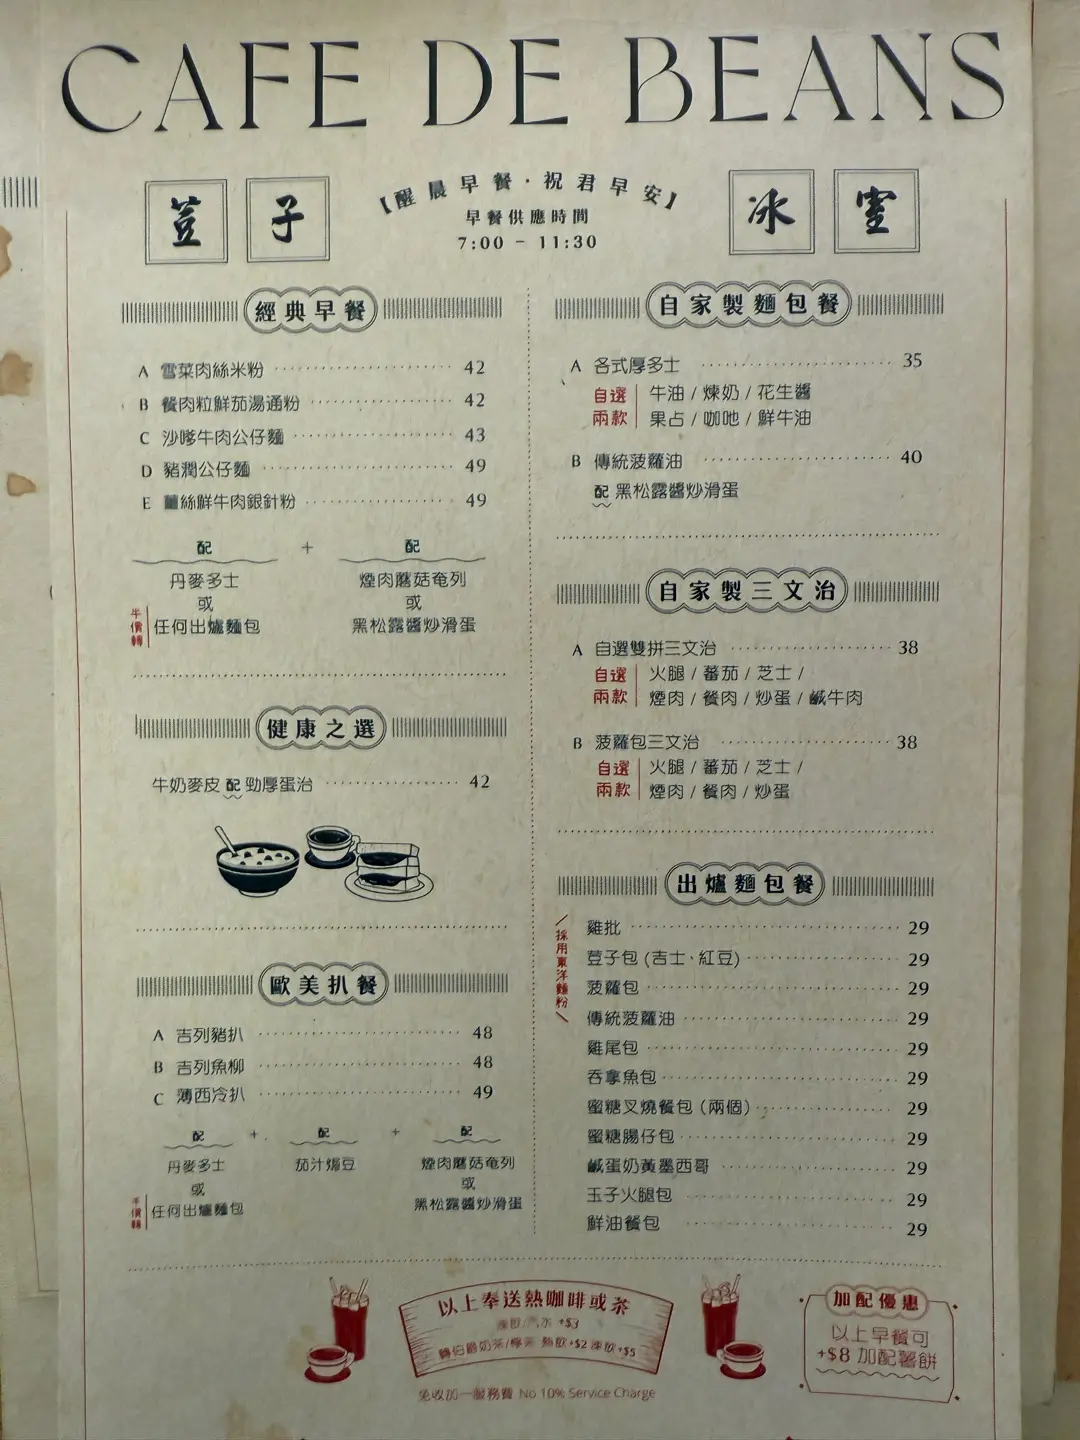 CAFE DE BEANS
荳子
【醒晨早餐·祝君早安】
早餐供應時間
7:00 - 11:30
冰室
經典早餐
A 雪菜肉絲米粉 42
B 餐肉粒鮮茄湯通粉 42
C 沙嗲牛肉公仔麵 43
D 豬潤公仔麵 49
E 薑絲鮮牛肉銀針粉 49
配 + 配
丹麥多士 煙肉蘑菇奄列
或 或
半價轉 任何出爐麵包 黑松露醬炒滑蛋
健康之選
牛奶麥皮 配 勁厚蛋治 42
歐美扒餐
A 吉列豬扒 48
B 吉列魚柳 48
C 薄西冷扒 49
配 + 配 + 配
丹麥多士 茄汁焗豆 煙肉蘑菇奄列
或 或
半價轉 任何出爐麵包 黑松露醬炒滑蛋
自家製麵包餐
A 各式厚多士 35
自選 牛油 / 煉奶 / 花生醬
兩款 果占 / 咖吔 / 鮮牛油
B 傳統菠蘿油 40
配 黑松露醬炒滑蛋
自家製三文治
A 自選雙拼三文治 38
自選 火腿 / 蕃茄 / 芝士 /
兩款 煙肉 / 餐肉 / 炒蛋 / 鹹牛肉
B 菠蘿包三文治 38
自選 火腿 / 蕃茄 / 芝士 /
兩款 煙肉 / 餐肉 / 炒蛋
出爐麵包餐
採用東洋麵粉
雞批 29
荳子包 (吉士、紅豆) 29
菠蘿包 29
傳統菠蘿油 29
雞尾包 29
吞拿魚包 29
蜜糖叉燒餐包 (兩個) 29
蜜糖腸仔包 29
鹹蛋奶黃墨西哥 29
玉子火腿包 29
鮮油餐包 29
以上奉送熱咖啡或茶
凍飲/汽水 +$3
轉伯爵奶茶/檸茶 熱飲+$2 凍飲+$5
免收加一服務費 No 10% Service Charge
加配優惠
以上早餐可
+$8 加配薯餅